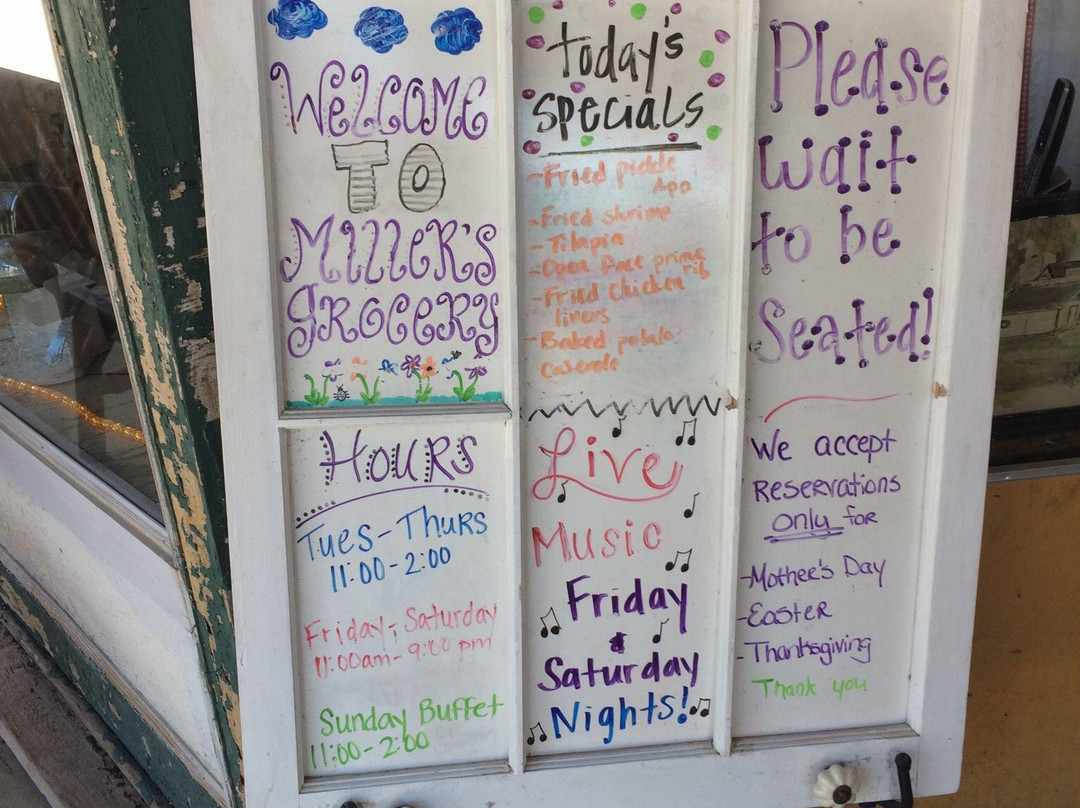 Welcome
TO
Miller's
Grocery
Hours
Tues-Thurs
11:00-2:00
Friday-Saturday
11:00am-9:00 pm
Sunday Buffet
11:00-2:00
Today's
Specials
-Fried pickle
App
-Fried shrimp
-Tilapia
-Open face prime
rib
-Fried Chicken
livers
-Baked potato
Caserole
Live
Music
Friday
&
Saturday
Nights!
Please
wait
to be
Seated!
We accept
Reservations
only for
-Mother's Day
-Easter
-Thanksgiving
Thank you